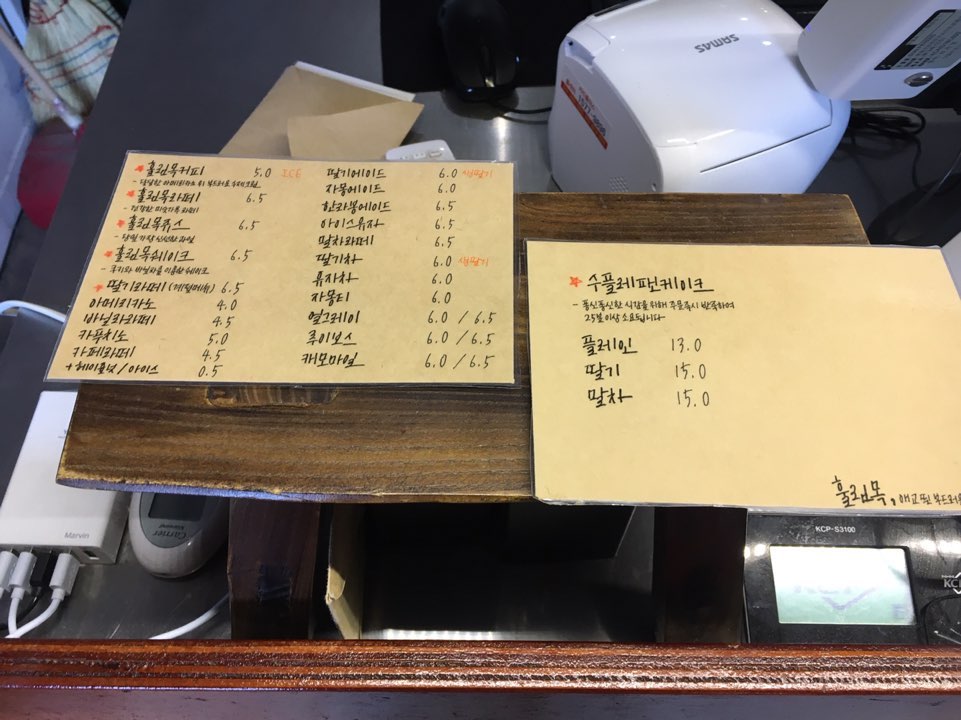 홀림목커피 5.0 ICE
홀림목라떼 6.5
홀림목쥬스 6.5
홀림목쉐이크 6.5
딸기라떼 (계절메뉴) 6.5
아메리카노 4.0
바닐라라떼 4.5
카푸치노 5.0
카페라떼 4.5
+ 헤이즐넛 / 아이스 0.5
딸기에이드 6.0 생딸기
자몽에이드 6.0
한라봉에이드 6.5
아이스유자 6.5
말차라떼 6.5
딸기차 6.0 생딸기
유자차 6.0
자몽티 6.0
얼그레이 6.0 / 6.5
루이보스 6.0 / 6.5
캐모마일 6.0 / 6.5
수플레팬케이크
- 퐁신퐁신한 식감을 위해 주문즉시 반죽하여
25분이상 소요됩니다
플레인 13.0
딸기 15.0
말차 15.0
홀림목,
SAM4S
Marvin
KCP-S3100